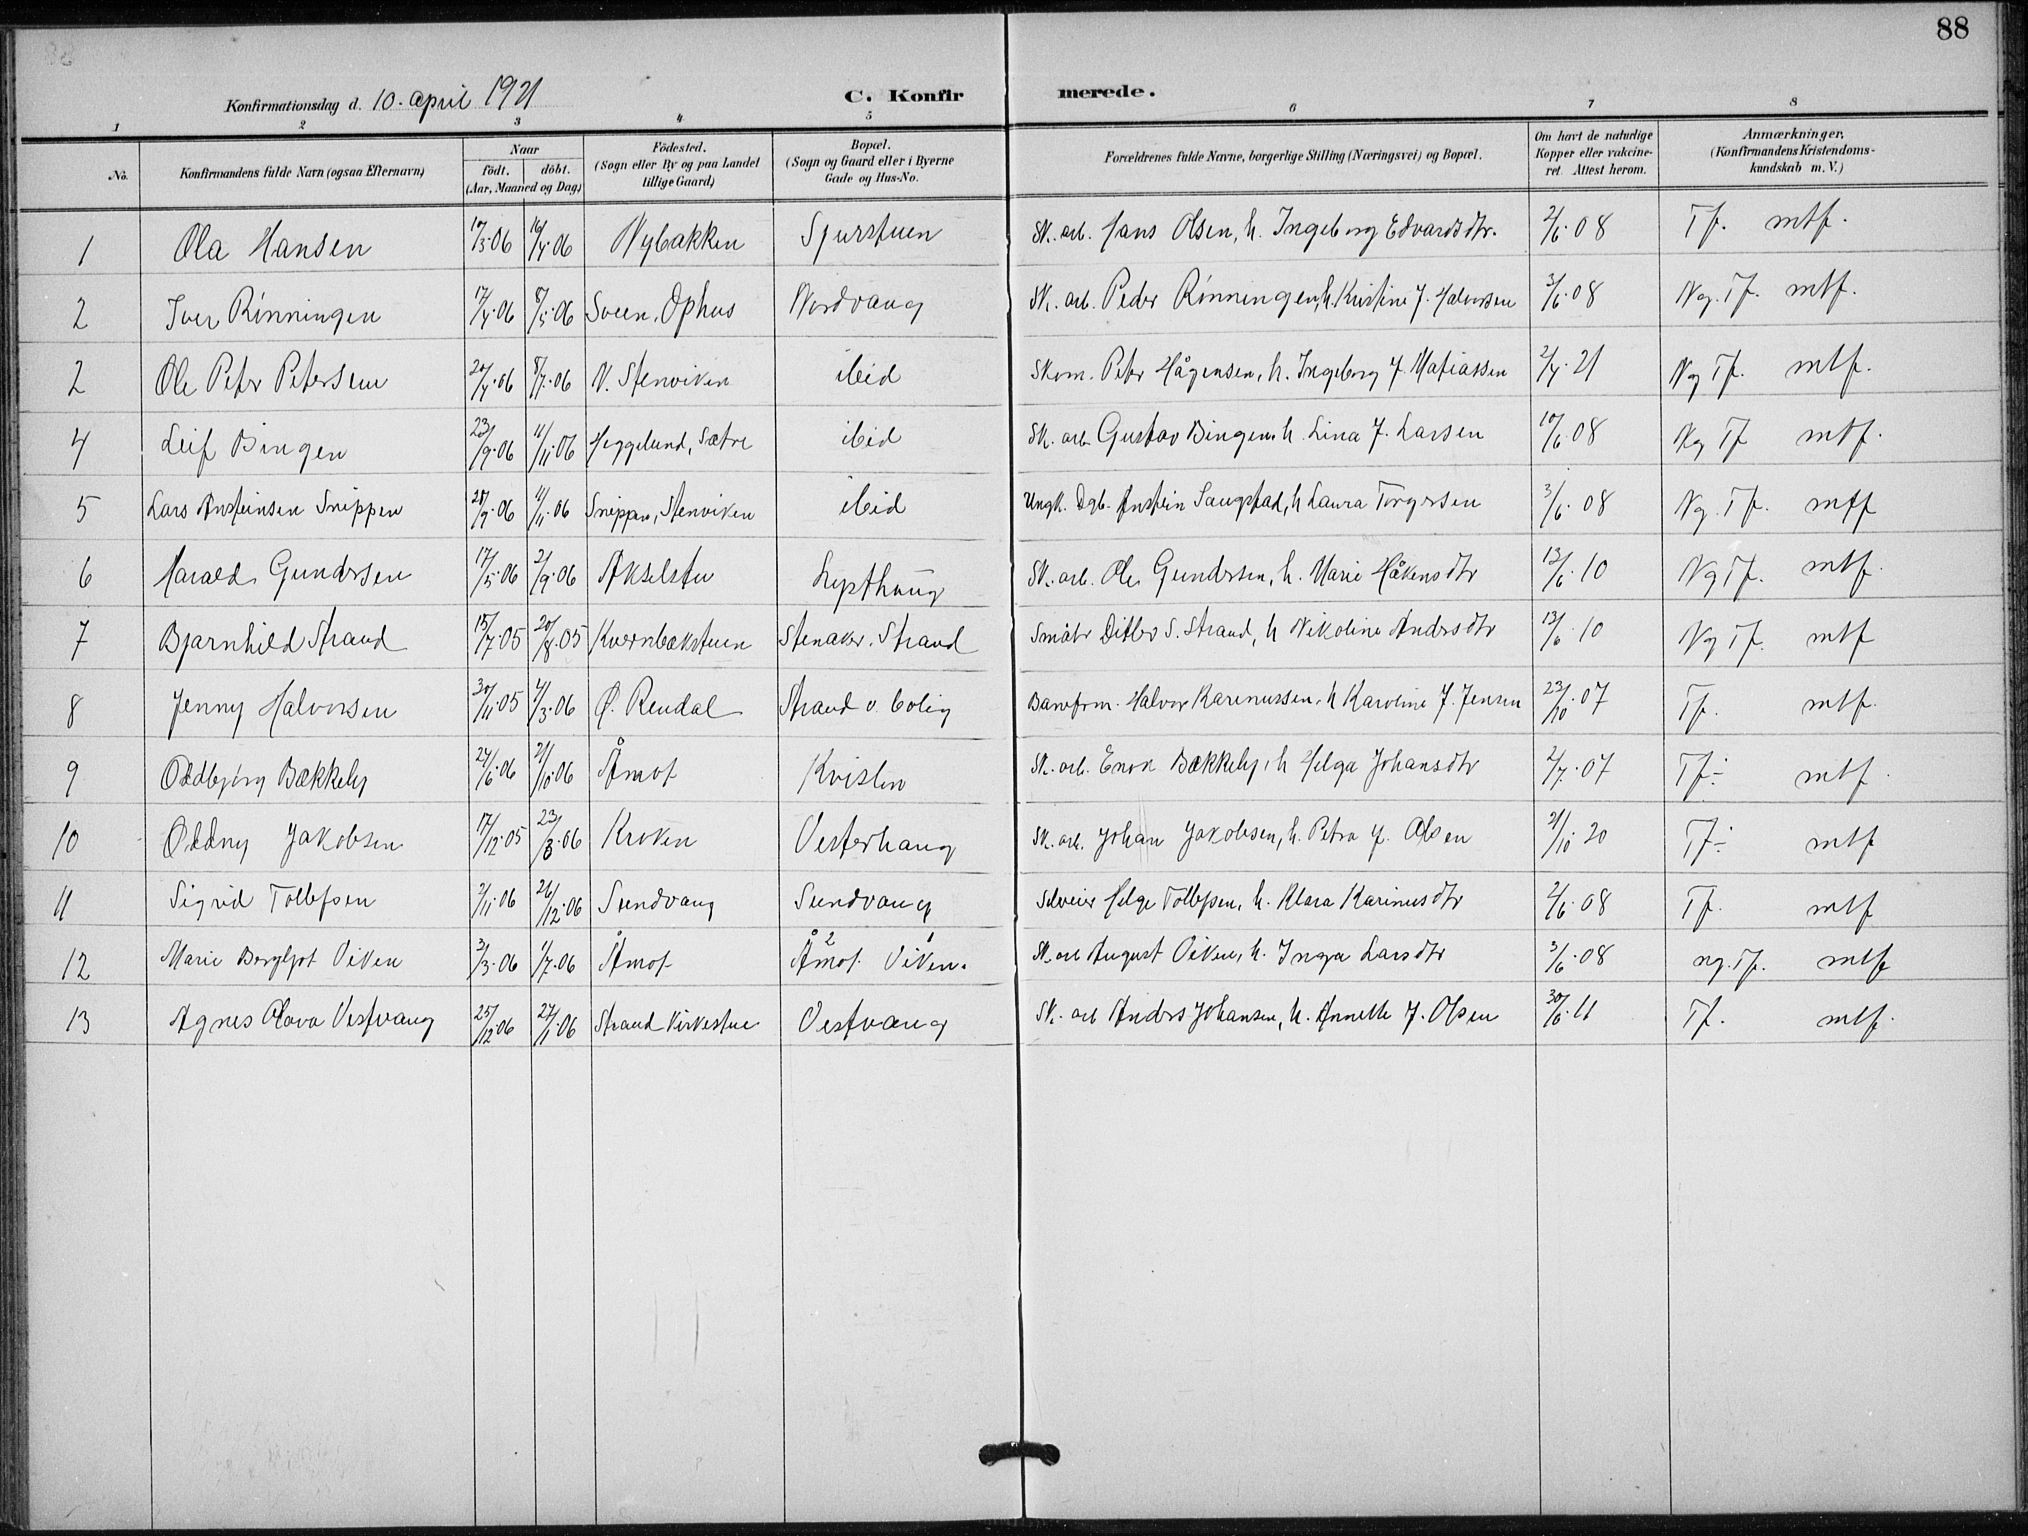 88
Konfirmationsdag d. 10. april 1921 C. Konfirmerede.
1 2 3 4 5 6 7 8
No. Konfirmandens fulde Navn (ogsaa Efternavn) Naar födt. döbt. (Aar, Maaned og Dag) Födested. (Sogn eller By og paa Landet tillige Gaard) Bopæl. (Sogn og Gaard eller i Byerne Gade og Hus-No. Forældrenes fulde Navne, borgerlige Stilling (Næringsvei) og Bopæl. Om havt de naturlige Kopper eller vakcineret. Attest herom. Anmærkninger. (Konfirmandens Kristendomskundskab m. V.)
1 Ola Hansen 17/3.06 16/4.06 Nybakken Sjurstuen Sk. arb. Hans Olsen, h. Ingeborg Edvardsdtr. 2/6.08 Tf. mtf.
2 Iver Rönningen 17/4.06 8/5.06 Sveen, Ophus Nordvang Sk. arb. Peder Rönningen, h. Kristine f. Halvorsen 3/6.08 Ng. Tf. mtf.
2 Ole Peter Petersen 20/4.06 8/7.06 N. Stenviken ibid Skom. Peter Hågensen, h. Ingeborg f. Matiassen 2/4.21 Ng Tf. mtf.
4 Leif Bingen 23/9.06 11/11.06 Heggelund, Sætre ibid Sk. arb. Gustav Bingen, h. Lina f. Larsen 10/6.08 Ng Tf mtf.
5 Lars Ansteinsen Snippen 28/9.06 11/11.06 Snippen, Stenviken ibid Ungk. Dgb. Anstein Saugstad, h Laura Torgersen 3/6.08 Ng. Tf. mtf
6 Harald Gundersen 17/5.06 2/9.06 Akselstu Lysthaug Sk. arb. Ole Gundersen, h. Marie Håkensdtr 13/6.10 Ng Tf. mtf.
7 Bjarnhild Strand 15/7.05 20/8.05 Kvernbækstuen Stenaker. Strand Småbr Ditlev S. Strand, h Nikoline Andersdtr 13/6.10 Ng Tf. mtf
8 Jenny Halvorsen 30/11.05 4/3.06 Ø. Rendal Strand v. bolig Banefrm. Halvor Karenussen, h Karoline f. Jensen 23/10.07 Tf. mtf.
9 Oddbjörg Bækkely 24/6.06 21/10.06 Åmot Kvislen Sk. arb. Enok Bækkely, h Helga Johansdtr 2/7.07 Tf÷ mtf.
10 Oddny Jakobsen 17/12.05 23/3.06 Kroken Vesterhaug Sk. arb. Johan Jakobsen, h. Petra f. Olsen 21/10 20 Tf÷ mtf
11 Sigrid Tollefsen 2/11.06 26/12.06 Sundvang Sundvang Selveier Helge Tollefsen, h. Klara Karinusdtr 2/6.08 Tf. mtf
12 Marie Bergljot Viken 3/3.06 1/7.06 Åmot Åmot 2 Viken. Sk. arb August Viken, h. Inga Larsdtr 3/6.08 ng. Tf. mtf
13 Agnes Olava Vestvang 25/12.06 27/1.06 Strand Virkestue Vestvang Sk. arb Anders Johansen, h. Annette f. Olsen 30/6.11 Tf. mtf.